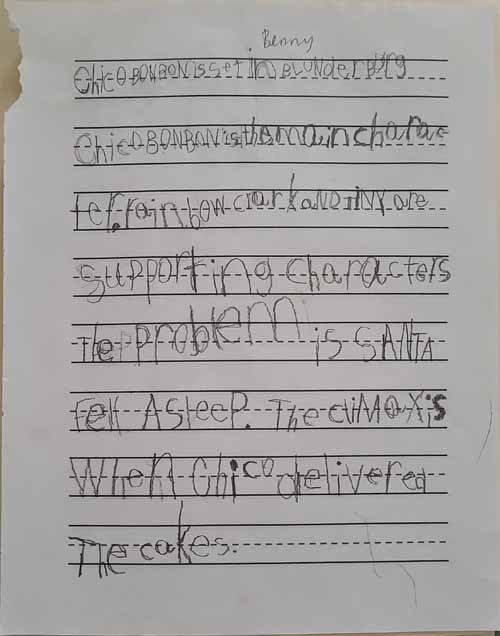 Benny
Chico BONBON is set in BLUNderBurg
Chico BONBON is the main charac
ter. rain bow clark AND TINY are
Supporting characters
The problem is SANTA
fell Asleep. The cliMax is
When Chico delivered
The cakes.